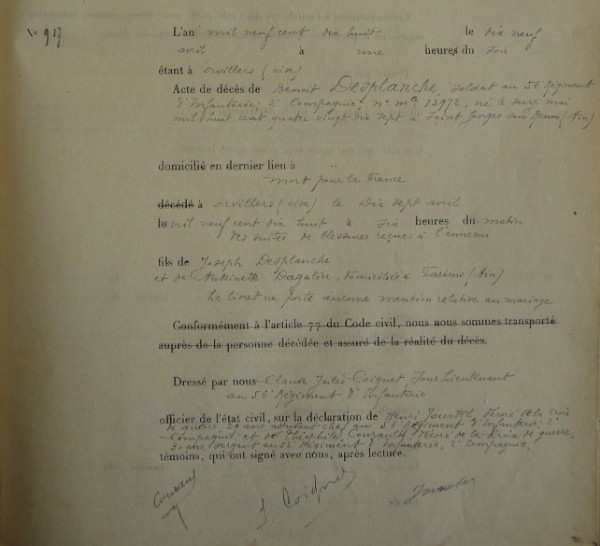 No 917
L'an mil neuf cent dix huit le dix neuf
avril à une heures du soir
étant à orvillers (oise)
Acte de décès de Benoit Desplanche, soldat au 56 Régiment
d'Infanterie, 2e Compagnie, no mle 13972, né le seize mai
mil huit cent quatre vingt dix sept à Saint Georges sur Renon (Ain)
domicilié en dernier lieu à "
mort pour la France
décédé à orvillers (oise) le Dix sept avril
le mil neuf cent dix huit à six heures du matin
des suites de blessures reçues à l'ennemi
fils de Joseph Desplanche
et de Antoinette Dagalier, domiciliés à (Ain)
Le livret ne porte aucune mention relative au mariage
Conformément à l'article 77 du Code civil, nous nous sommes transporté
auprès de la personne décédée et assuré de la réalité du décès.
Dressé par nous Claude Jules Coignet Sous Lieutenant
au 56 Régiment d'Infanterie
officier de l'état civil, sur la déclaration de Henri décoré de la croix
de guerre, 29 ans adjudant chef au 56 Régiment d'Infanterie, 2e
Compagnie et de Théophile décoré de la Croix de guerre,
ans sergent au 56 Régiment d'Infanterie, 2e Compagnie,
témoins, qui ont signé avec nous, après lecture.
J. Coignet